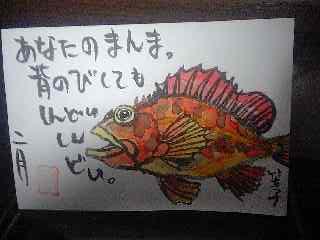 あなたのまんま。
背のびしても
しんどい
しん
どい。
二月